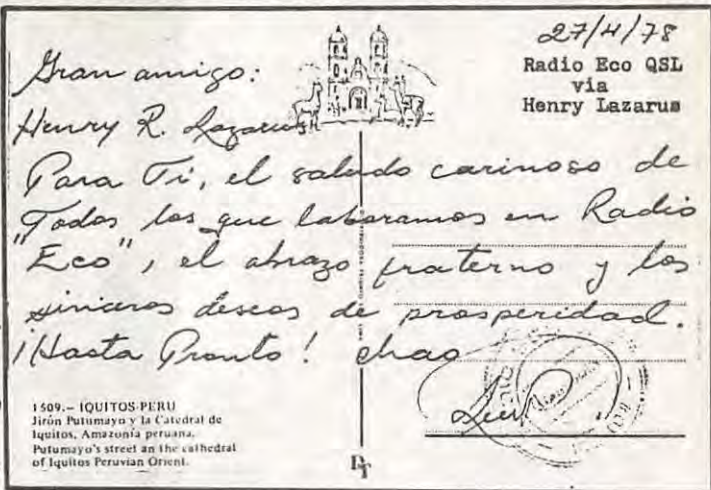 27/4/78
Radio Eco QSL
via
Henry Lazarus
Gran amigo:
Henry R. Lazarus
Para Ti, el saludo carinoso de
Todos los que laboramos en Radio
"Eco", el abrazo fraterno y los
sinceros deseos de prosperidad.
¡Hasta Pronto! chao
1509.- IQUITOS-PERU
Jirón Putumayo y la Catedral de
Iquitos, Amazonía peruana.
Putumayo's street an the cathedral
of Iquitos Peruvian Orient.